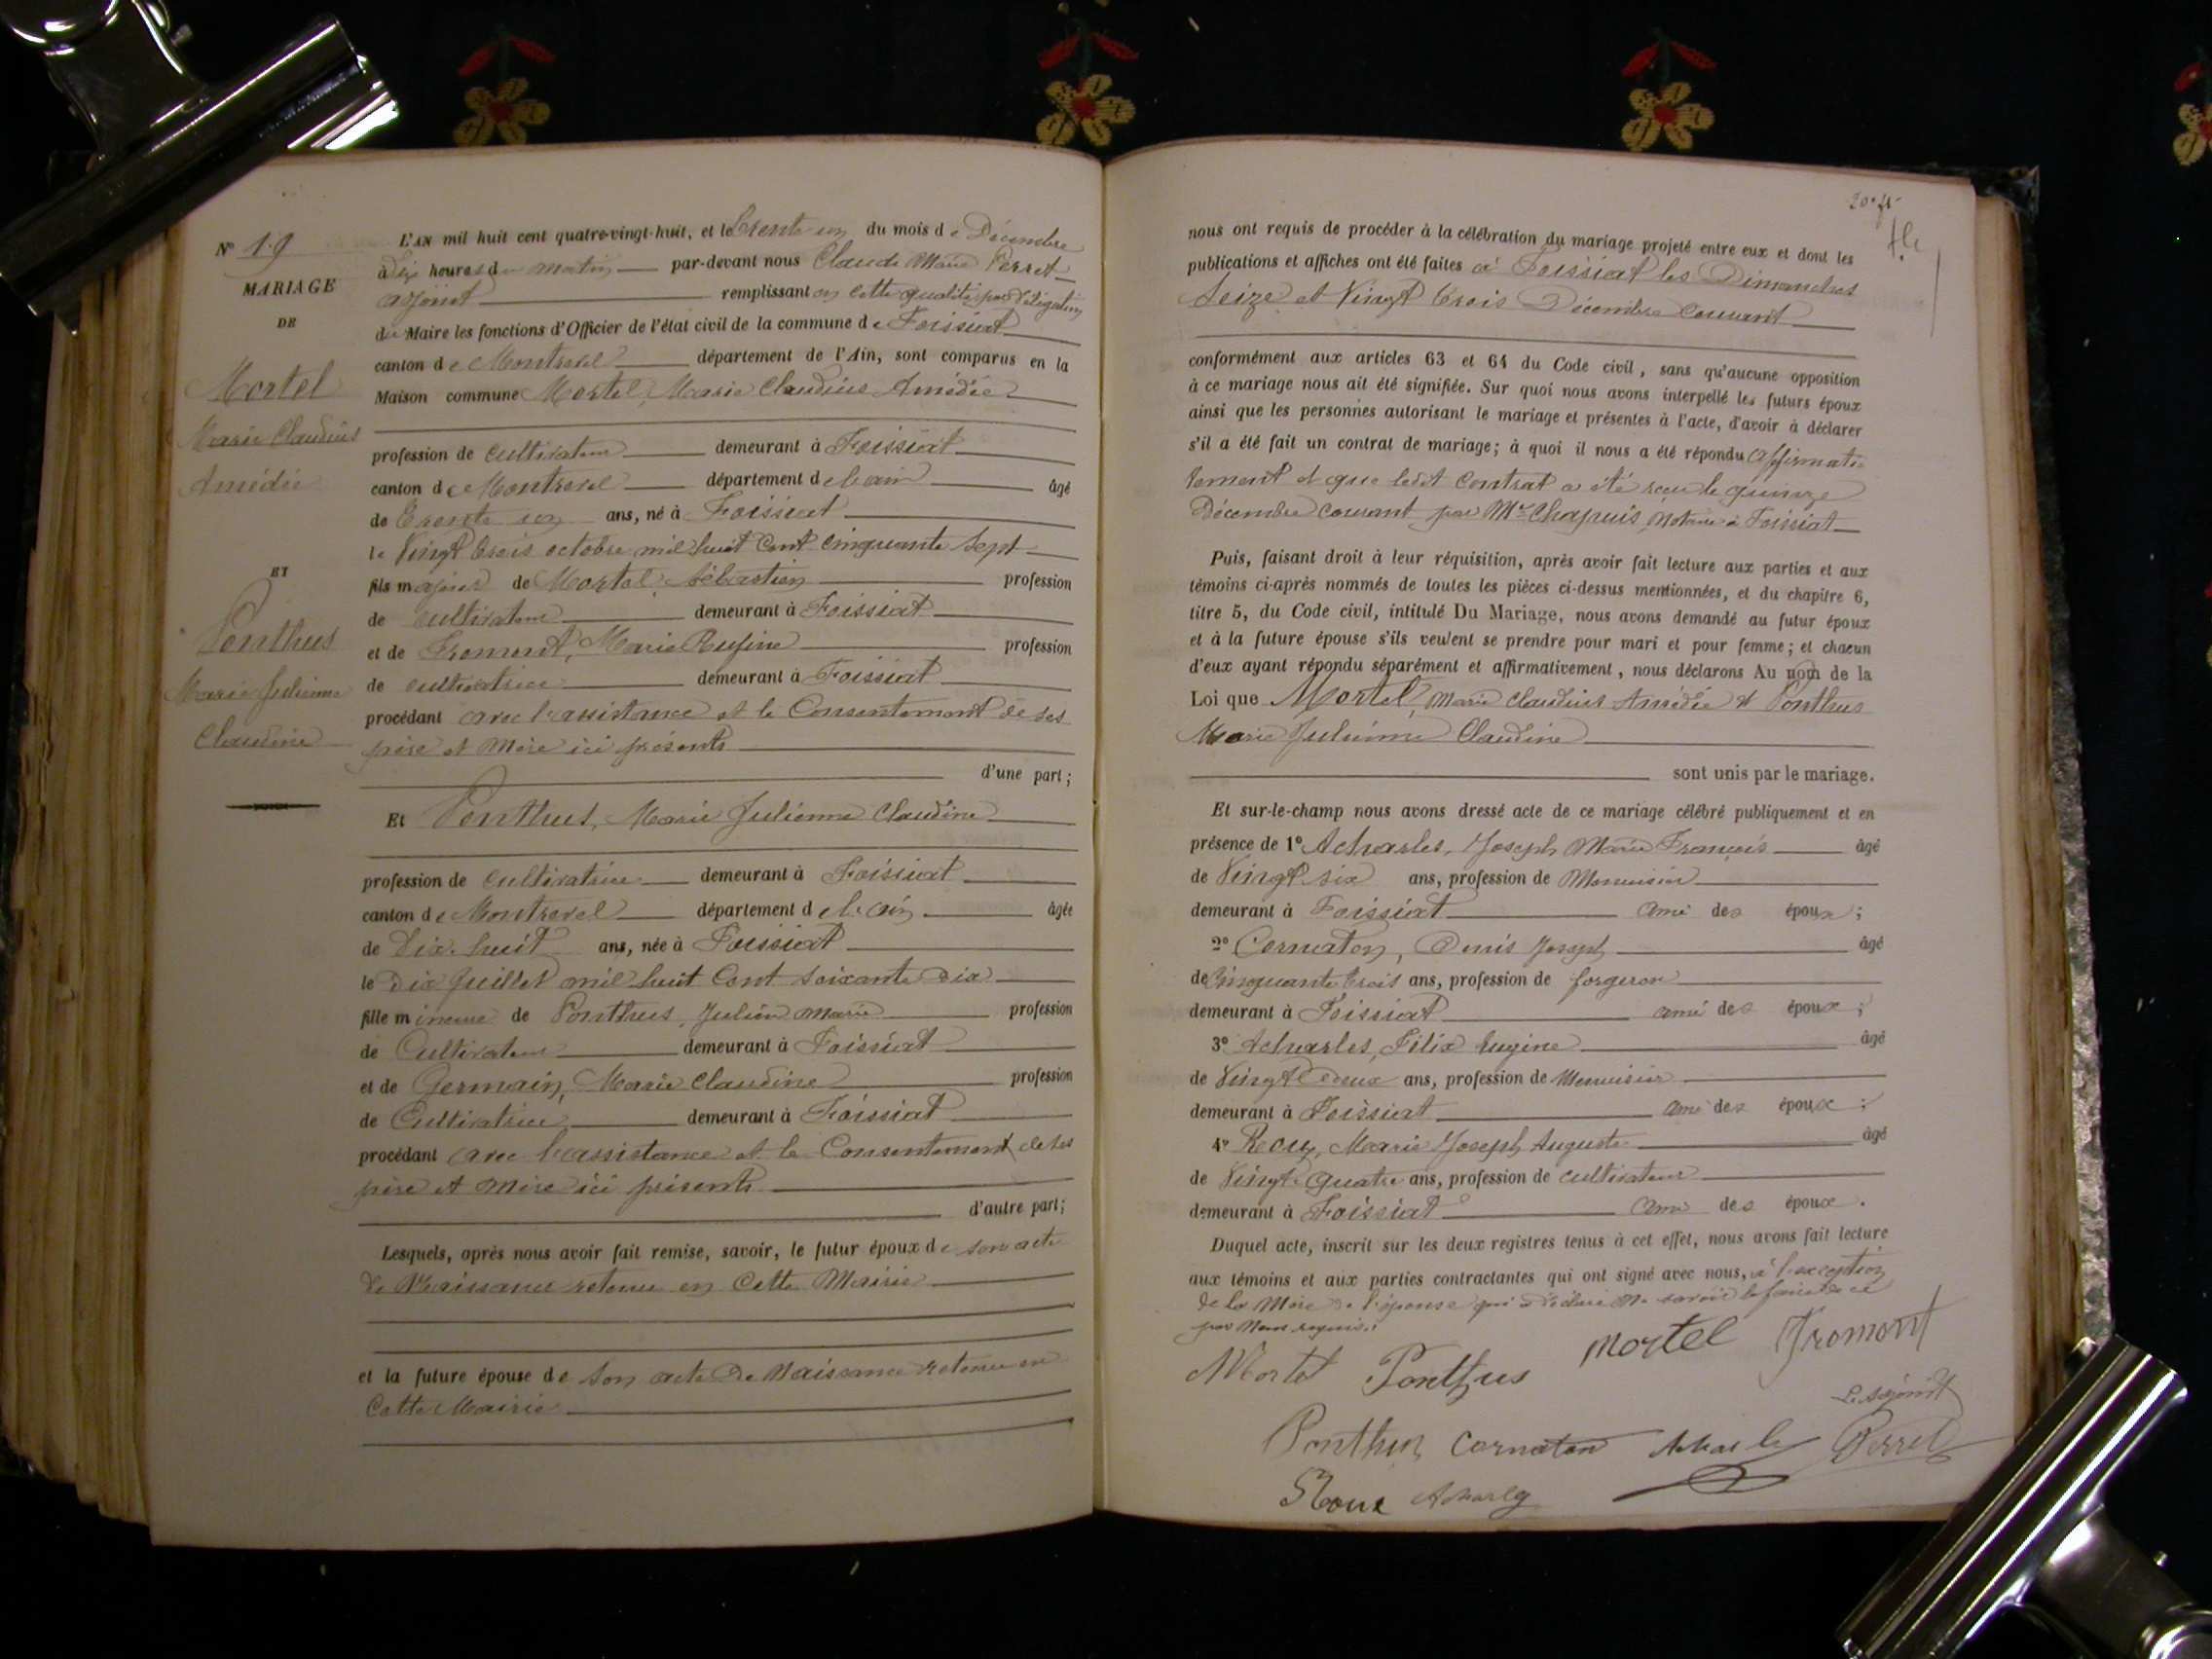 N° 19
MARIAGE
DE
Mortel
Marie Claudius
Amédée
ET
Ponthus
Marie Julienne
Claudine
L'AN mil huit cent quatre-vingt-huit, et le trente un du mois de Décembre
à dix heures du matin par-devant nous Claude Marie Perret
adjoint remplissant en cette qualité par délégation
du Maire les fonctions d'Officier de l'état civil de la commune de Foissiat
canton de Montrevel département de l'Ain, sont comparus en la
Maison commune Mortel, Marie Claudius Amédée
profession de cultivateur demeurant à Foissiat
canton de Montrevel département de l'ain âgé
de trente un ans, né à Foissiat
le Vingt trois octobre mil huit Cent Cinquante Sept
fils majeur de Mortel, Sébastien profession
de cultivateur demeurant à Foissiat
et de Fromont, Marie Rufine profession
de cultivatrice demeurant à Foissiat
procédant avec l'assistance et le Consentement de ses
père et Mère ici présents
d'une part;
Et Ponthus, Marie Julienne Claudine
profession de cultivatrice demeurant à Foissiat
canton de Montrevel département de l'ain âgée
de Dix-huit ans, née à Foissiat
le Dix Juillet mil huit Cent Soixante Dix
fille mineure de Ponthus, Julien Marie profession
de Cultivateur demeurant à Foissiat
et de Germain, Marie Claudine profession
de Cultivatrice demeurant à Foissiat
procédant avec l'assistance et le Consentement de ses
père et Mère ici présents
d'autre part;
Lesquels, après nous avoir fait remise, savoir, le futur époux de son acte
de Naissance retenu en Cette Mairie
et la future épouse de son acte de Naissance retenu en
Cette Mairie
nous ont requis de procéder à la célébration du mariage projeté entre eux et dont les
publications et affiches ont été faites à Foissiat les Dimanches
Seize et Vingt trois Décembre Courant
conformément aux articles 63 et 64 du Code civil, sans qu'aucune opposition
à ce mariage nous ait été signifiée. Sur quoi nous avons interpellé les futurs époux
ainsi que les personnes autorisant le mariage et présentes à l'acte, d'avoir à déclarer
s'il a été fait un contrat de mariage; à quoi il nous a été répondu affirmati
vement et que ledit Contrat a été reçu le quinze
Décembre Courant par Me Chapuis, Notaire à Foissiat
Puis, faisant droit à leur réquisition, après avoir fait lecture aux parties et aux
témoins ci-après nommés de toutes les pièces ci-dessus mentionnées, et du chapitre 6,
titre 5, du Code civil, intitulé Du Mariage, nous avons demandé au futur époux
et à la future épouse s'ils veulent se prendre pour mari et pour femme; et chacun
d'eux ayant répondu séparément et affirmativement, nous déclarons Au nom de la
Loi que Mortel, Marie Claudius Amédée et Ponthus
Marie Julienne Claudine
sont unis par le mariage.
Et sur-le-champ nous avons dressé acte de ce mariage célébré publiquement et en
présence de 1° Acharles, Joseph Marie François âgé
de Vingt six ans, profession de Menuisier
demeurant à Foissiat ami des époux;
2° Cornaton, Denis Joseph âgé
de Cinquante trois ans, profession de forgeron
demeurant à Foissiat ami des époux;
3° Acharles Félix Eugène âgé
de Vingt Deux ans, profession de Menuisier
demeurant à Foissiat ami des époux;
4° Roux, Marie Joseph Auguste âgé
de Vingt Quatre ans, profession de cultivateur
demeurant à Foissiat ami des époux.
Duquel acte, inscrit sur les deux registres tenus à cet effet, nous avons fait lecture
aux témoins et aux parties contractantes qui ont signé avec nous, à l'exception
de la Mère de l'épouse qui a déclaré ne savoir le faire de ce
par Nous requis.
Mortel Ponthus Mortel Fromont
L'adjoint
Ponthus Cornaton Acharles Perret
Roux Acharles